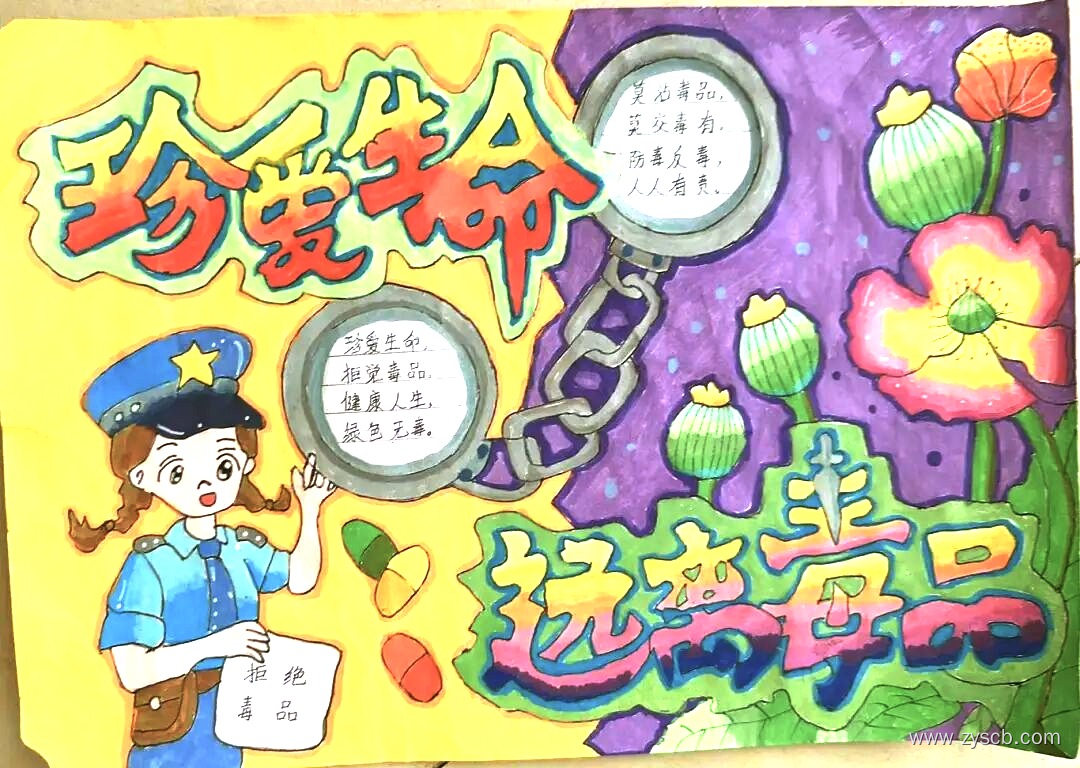 珍爱生命
莫沾毒品,
莫交毒有,
防毒反毒,
人人有责。
珍爱生命,
拒觉毒品,
健康人生,
绿色无毒。
远离毒品
拒绝
毒品
www.zyscb.com